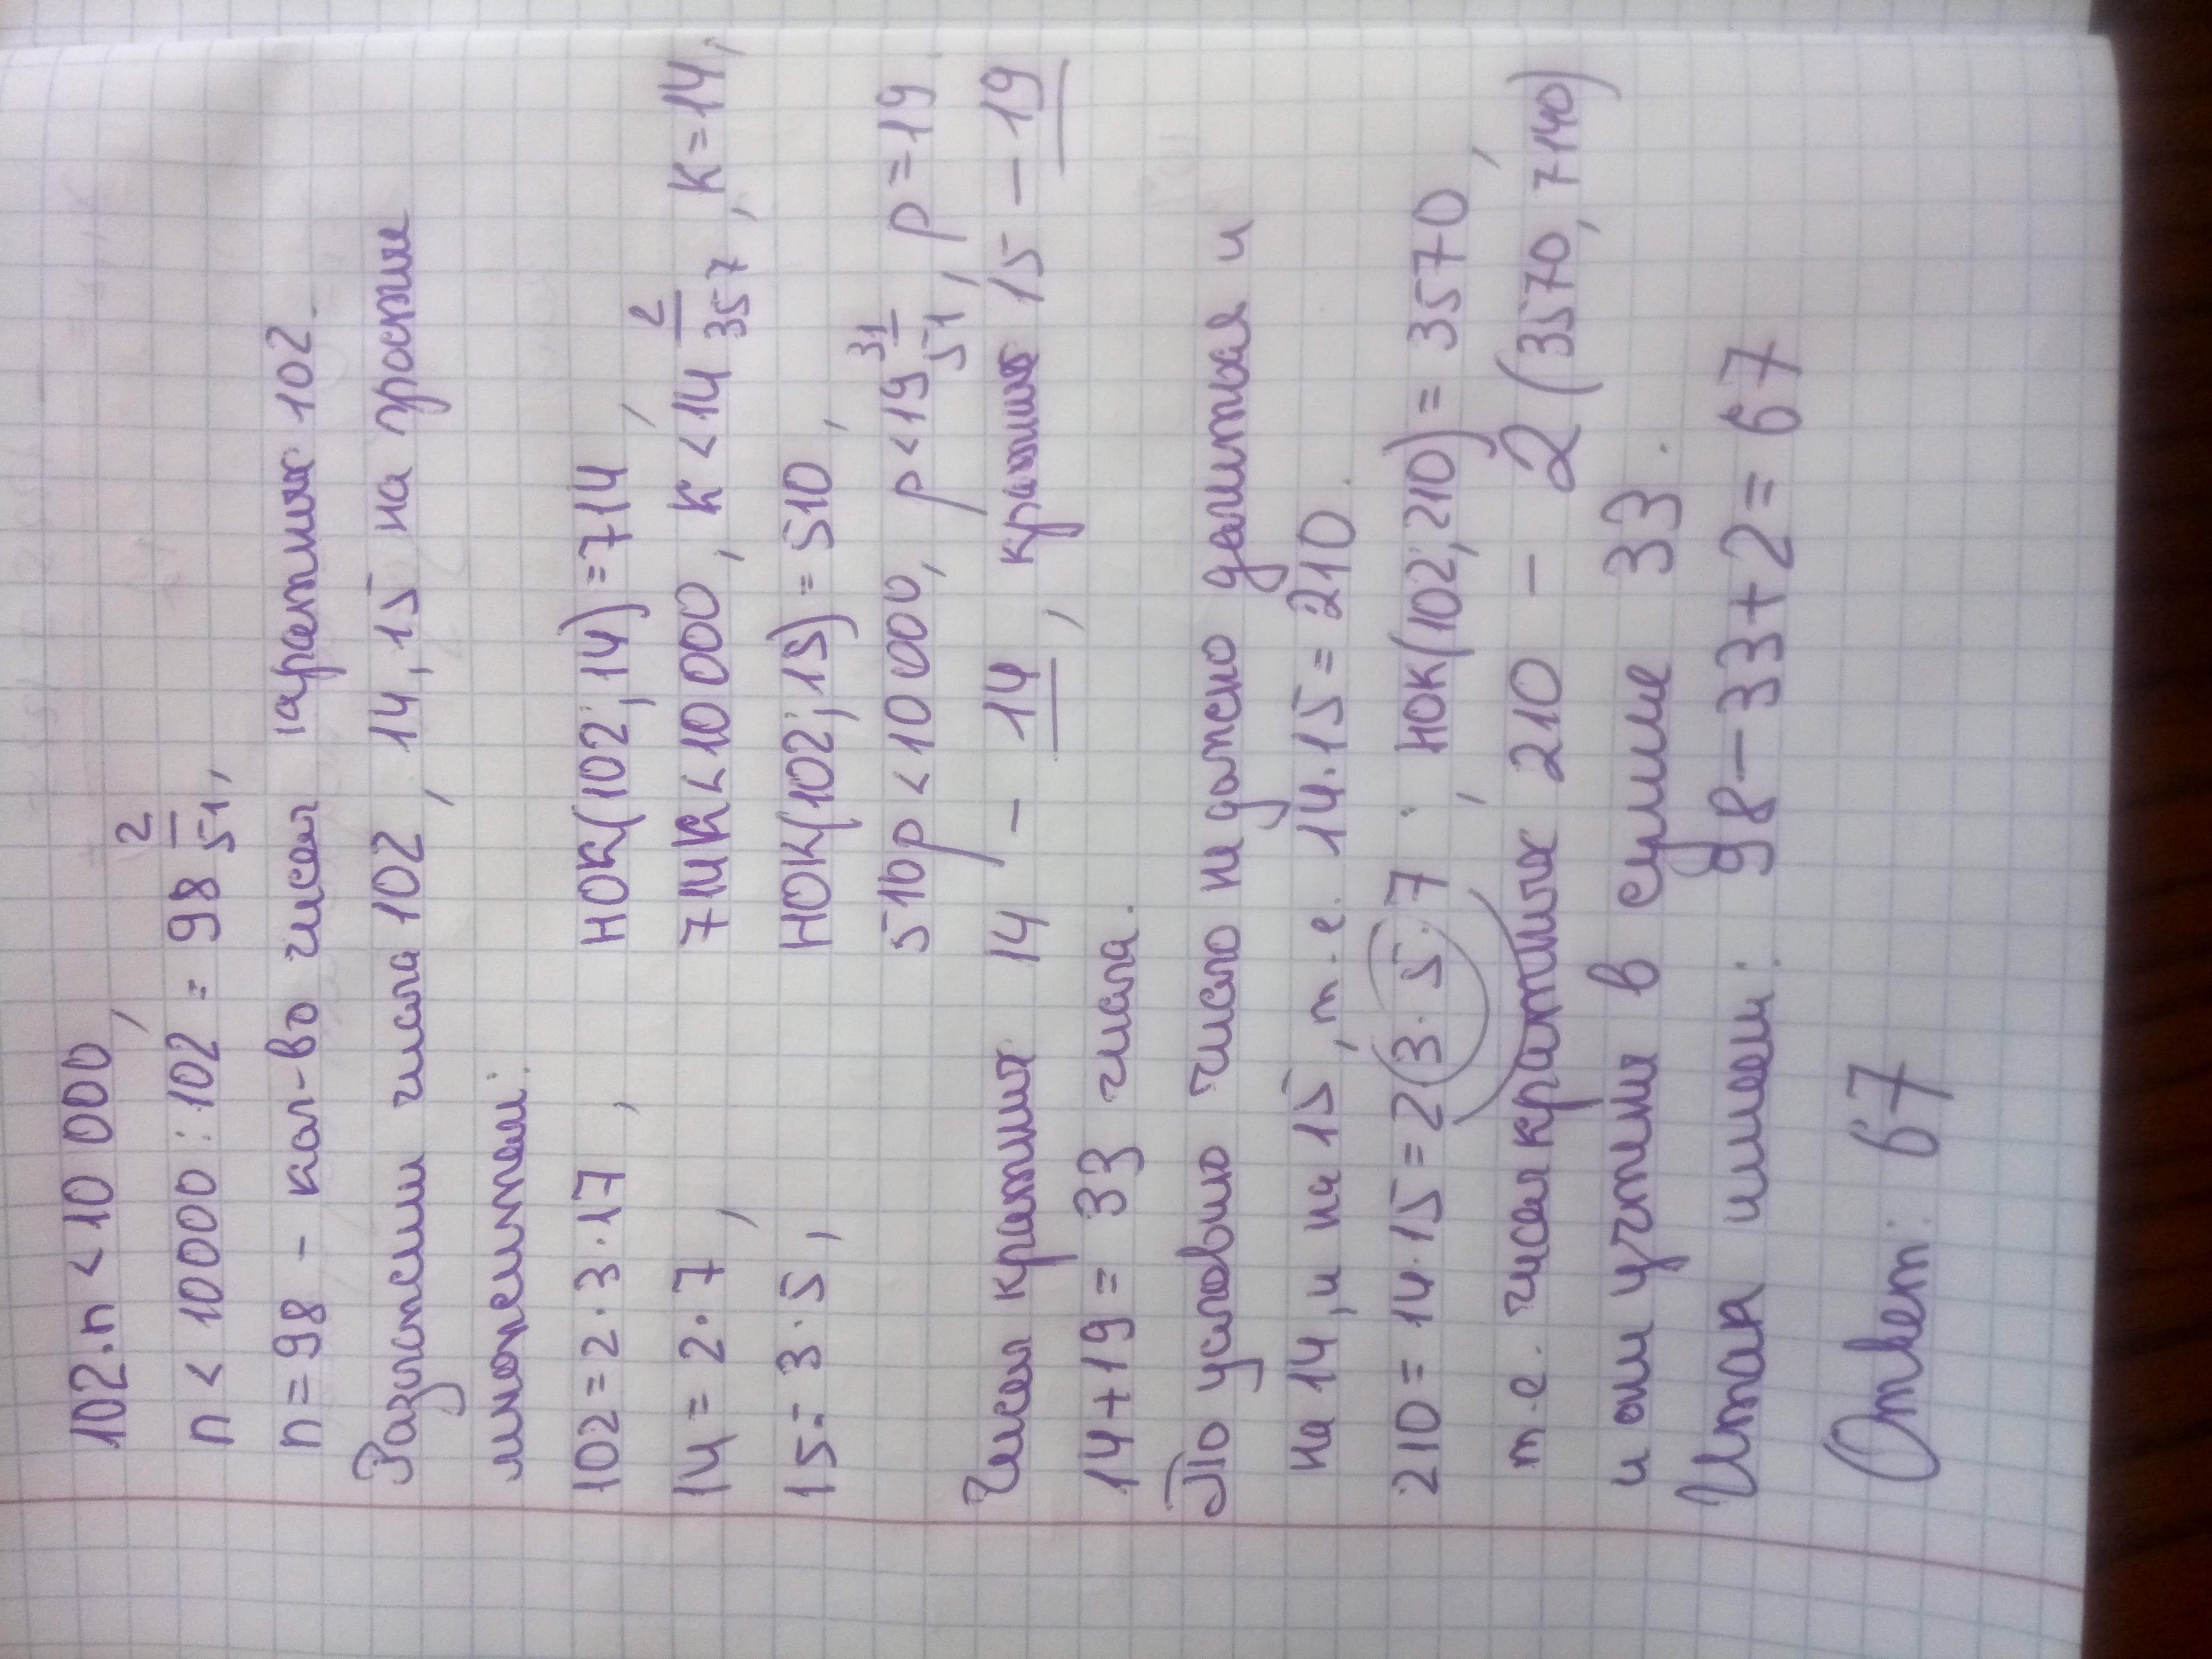 102·n < 10 000,
n < 10000 : 102 = 98 2/51,
n = 98 – кол-во чисел кратных 102.
Разложим числа 102, 14, 15 на простые
множители:
102 = 2·3·17, НОК(102; 14) = 714,
14 = 2·7, 714k < 10 000, k < 14 2/357, k = 14,
15 = 3·5, НОК(102; 15) = 510,
510p < 10 000, p < 19 31/51, p = 19.
Чисел кратных 14 – 14, кратных 15 – 19
14 + 19 = 33 числа.
По условию число не должно делиться и
на 14, и на 15, т.е. 14·15 = 210.
210 = 14·15 = 2·3·5·7, НОК(102; 210) = 3570,
т.е. чисел кратных 210 – 2 (3570, 7140)
и они учтены в сумме 33.
Итак имеем: 98 – 33 + 2 = 67
Ответ: 67